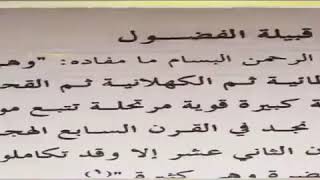 قبيلة الفضول
الرحمن البسام ما مفاده: "وهم
ثم الكهلانية ثم
كبيرة قوية مرتحلة تتبع
نجد في القرن السابع
الثاني عشر إلا وقد تكاملوا
وهم كثيرة "(١)